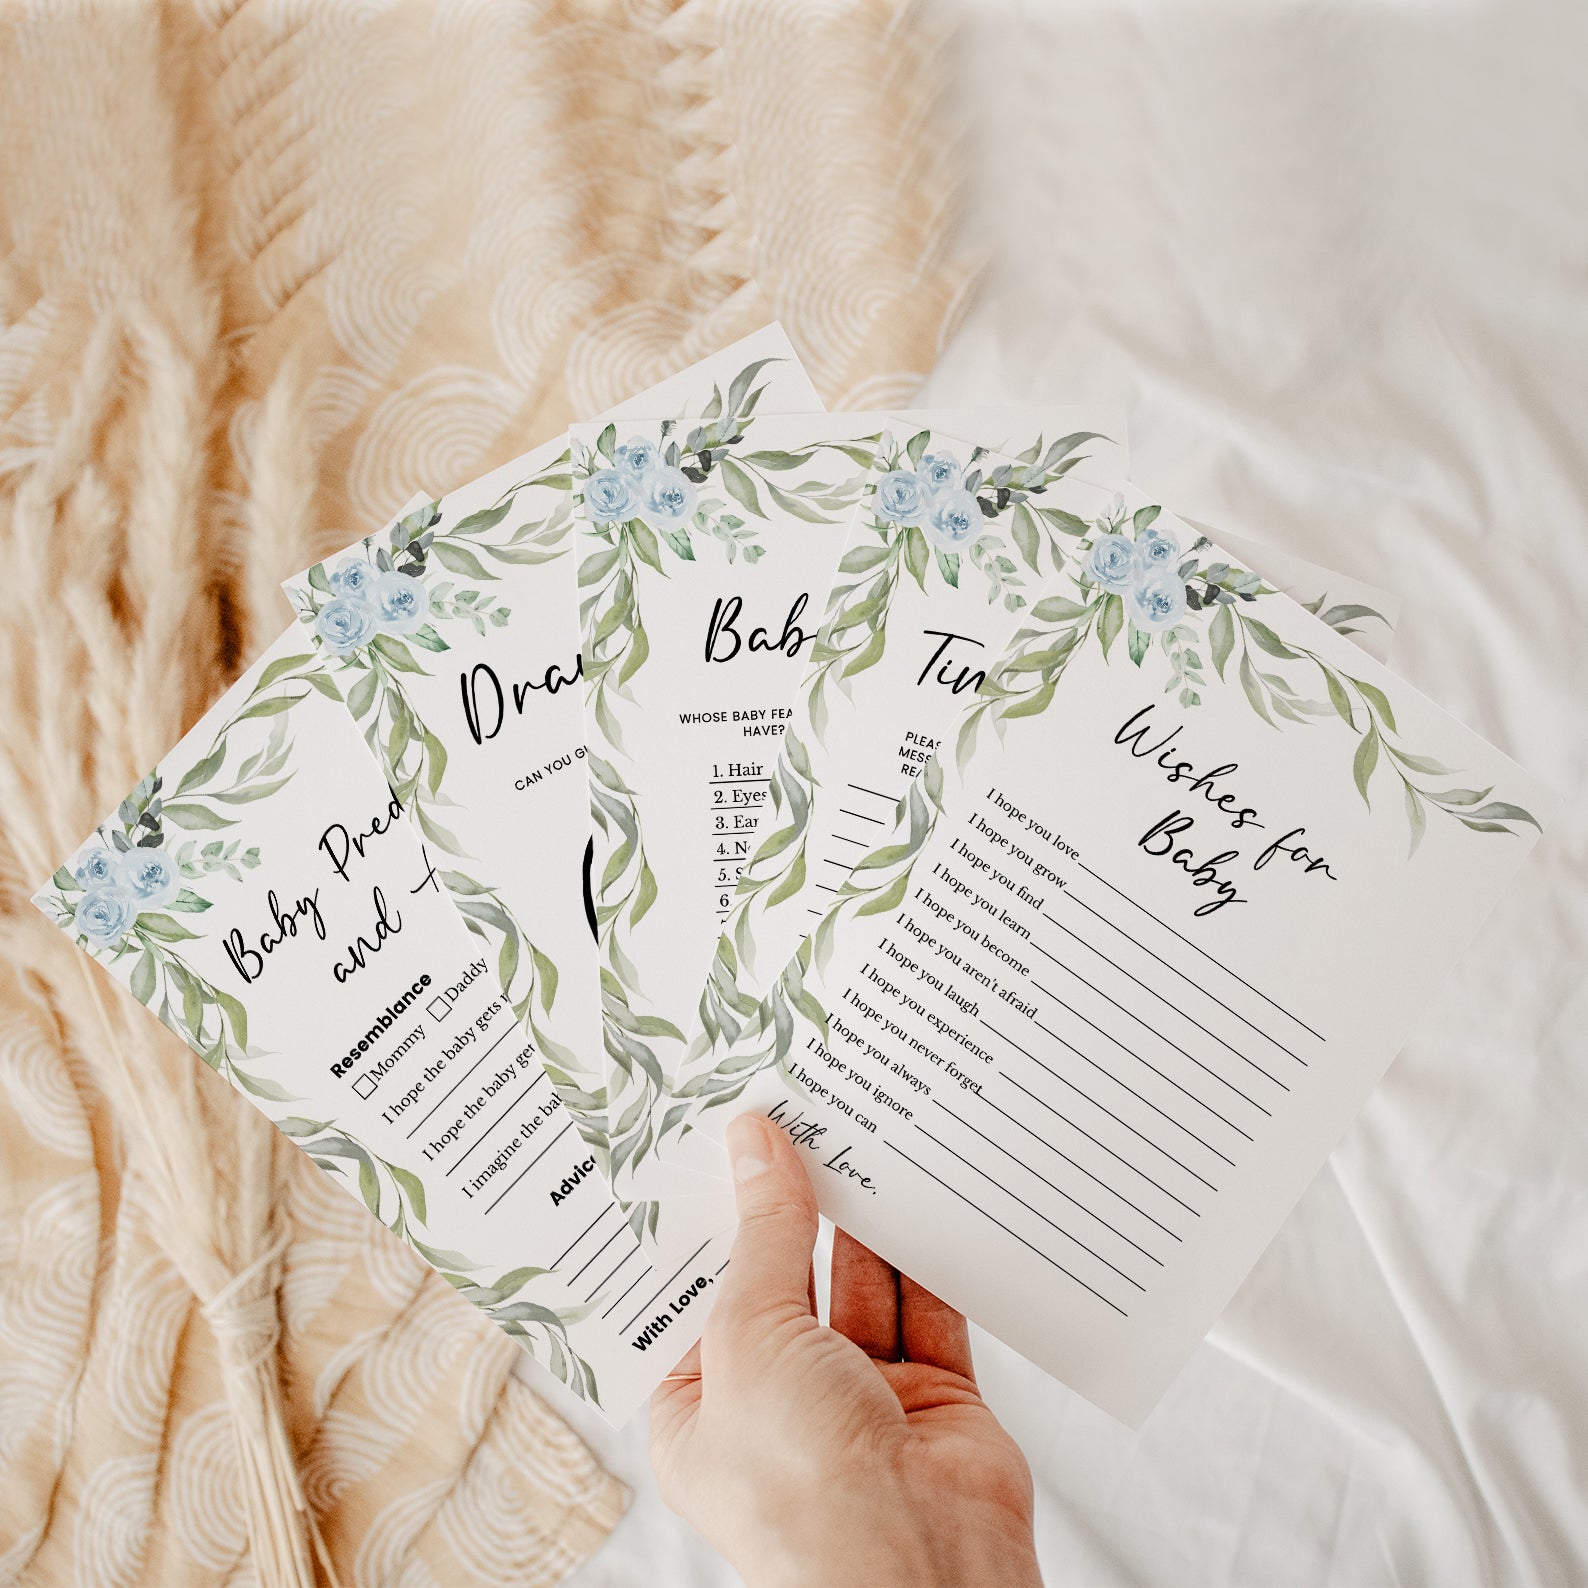 Baby Pred
and
Resemblance
Mommy Daddy
I hope the baby gets
I hope the baby get
I imagine the bab
Advic
With Love,
Draw
CAN YOU GU
Bab
WHOSE BABY FEA
HAVE?
1. Hair
2. Eyes
3. Ear
4. N
5. S
6
Tim
PLEAS
MESS
REA
Wishes for
Baby
I hope you love
I hope you grow
I hope you find
I hope you learn
I hope you become
I hope you aren't afraid
I hope you laugh
I hope you experience
I hope you never forget
I hope you always
I hope you ignore
I hope you can
With Love.